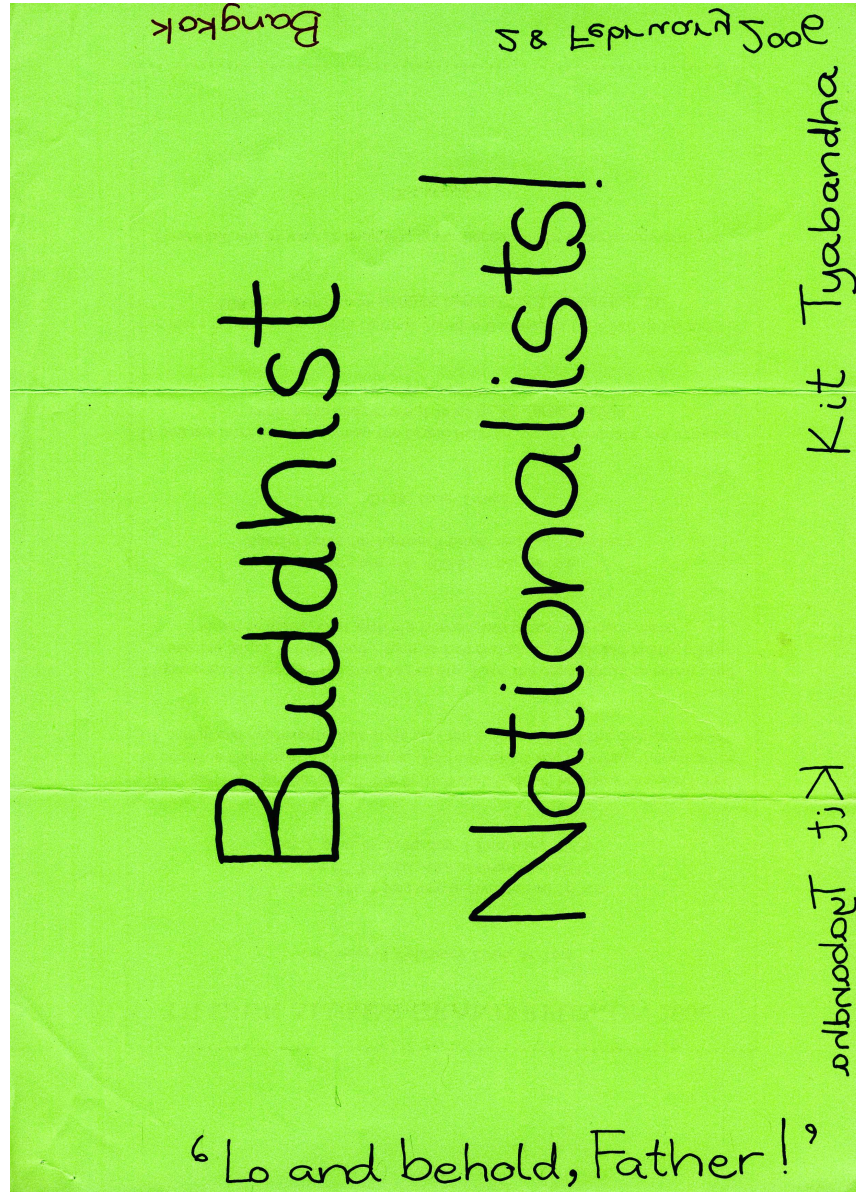 Bangkok
28 February 2006
Buddhist
Nationalists!
Kit Tyabandha
Kit Tyabandha
‘Lo and behold, Father!’